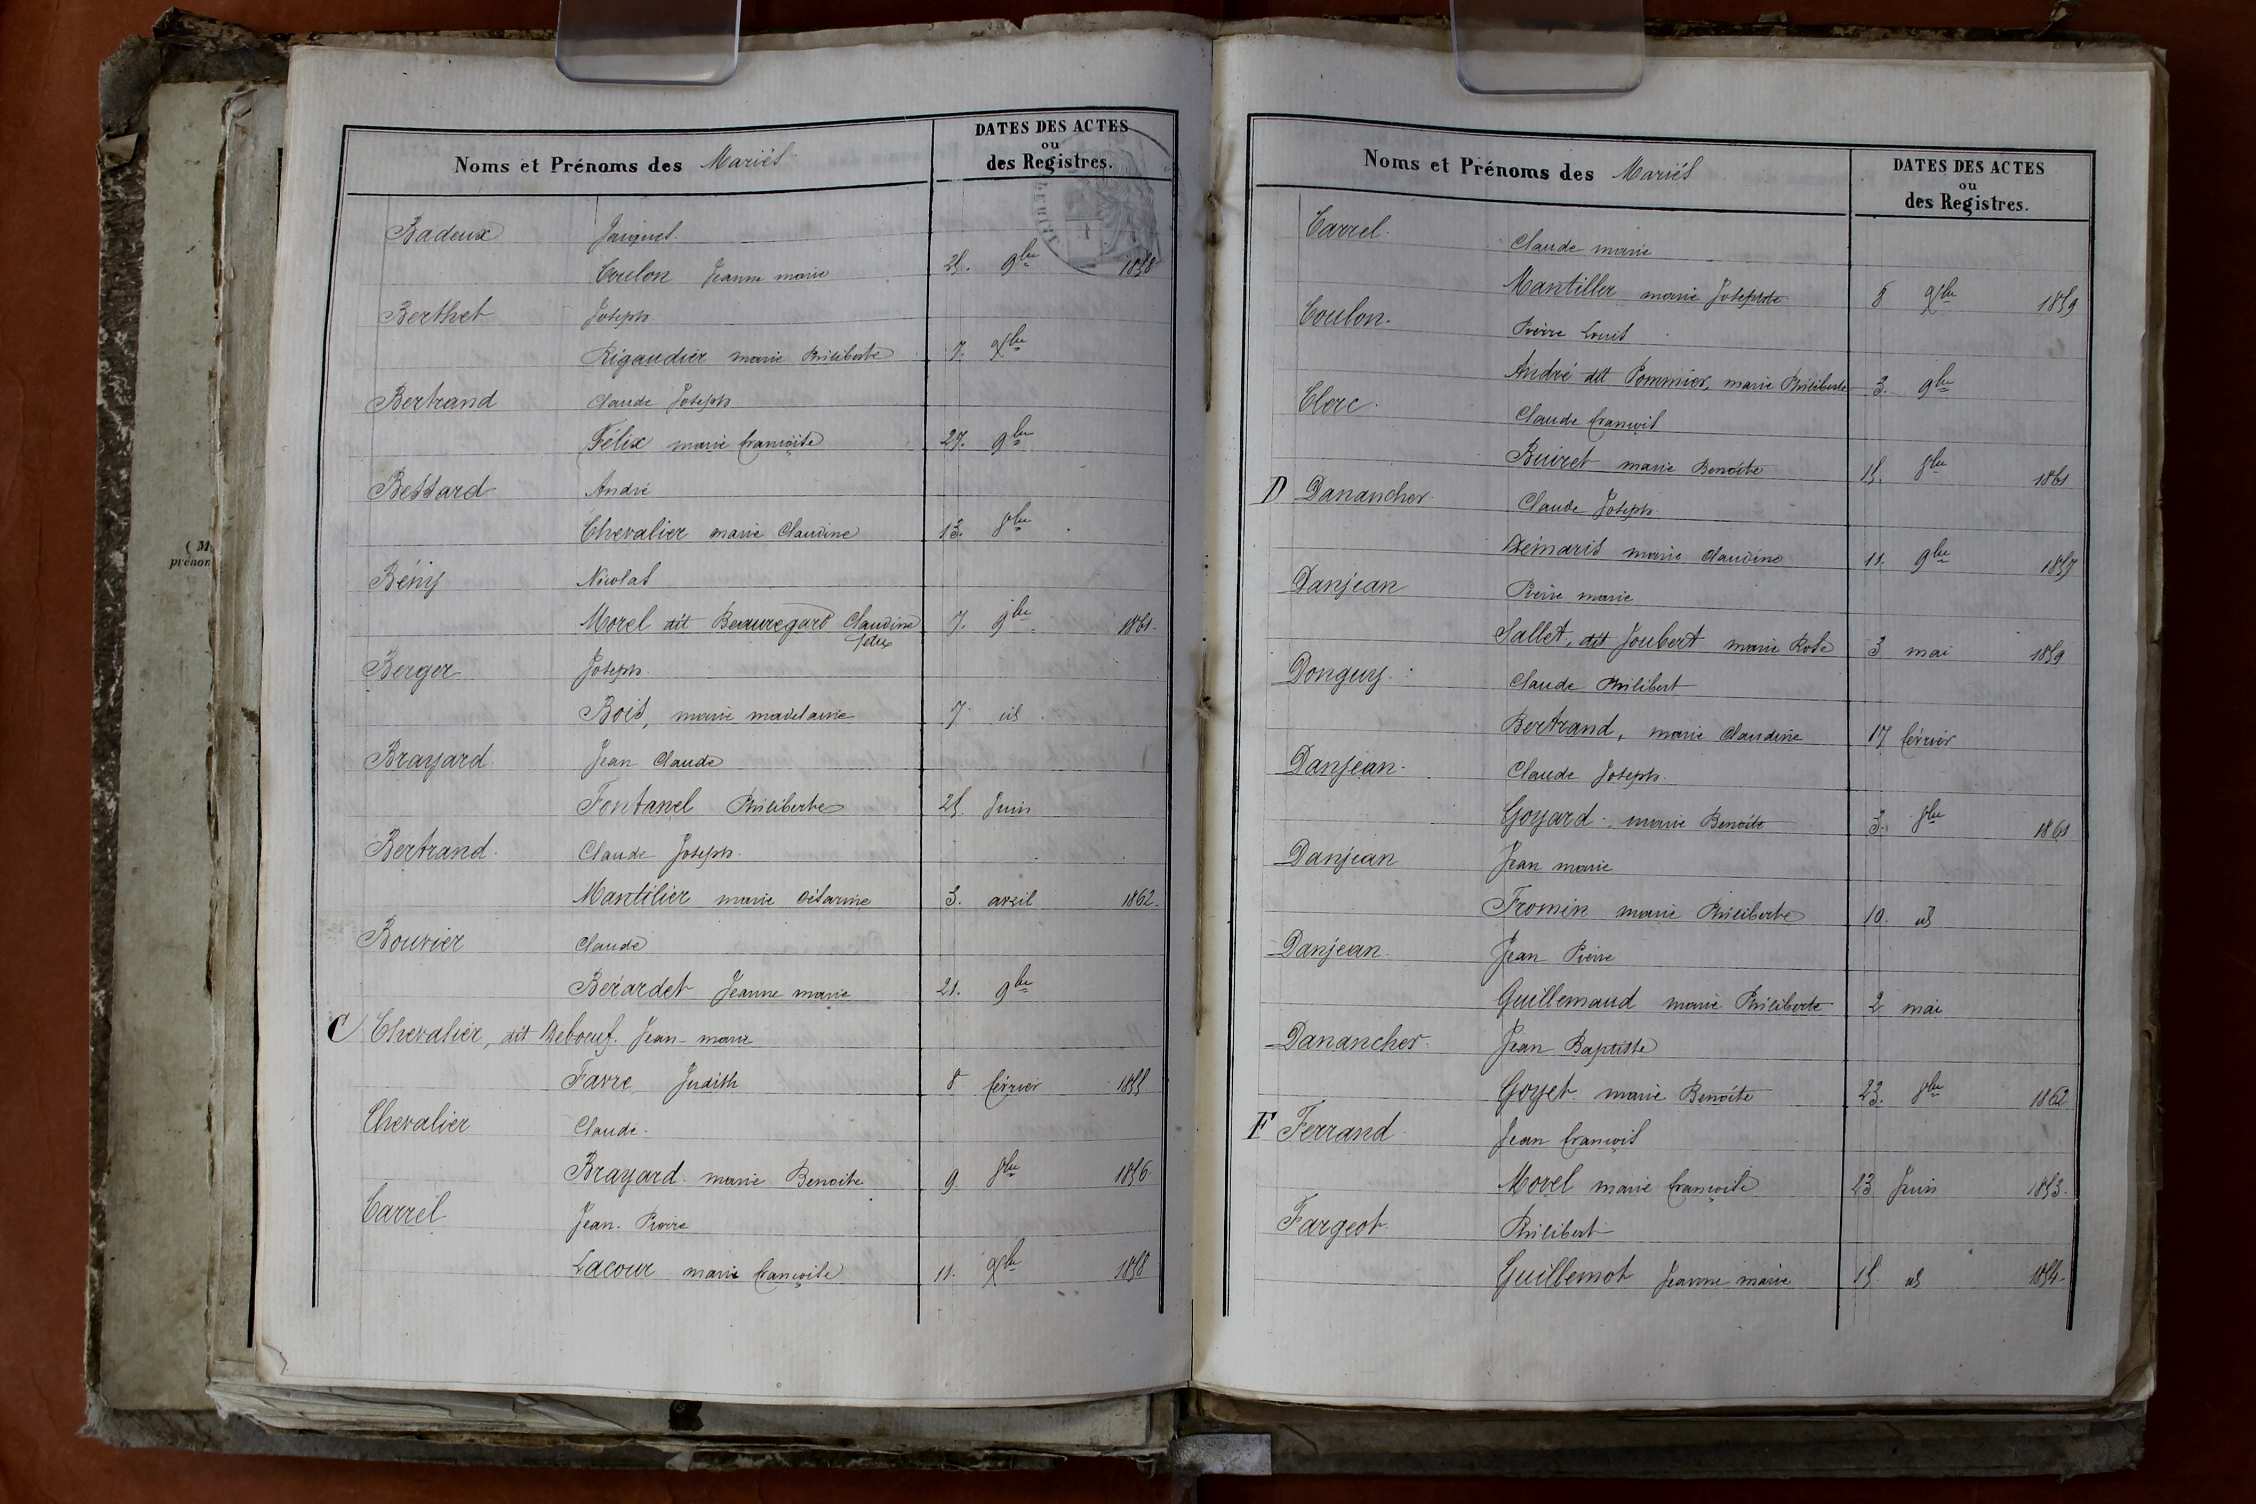 Noms et Prénoms des Mariés
DATES DES ACTES
ou
des Registres.
Badeux Jacques.
Coulon Jeanne marie 25. 9bre 1858
Berthet Joseph
Rigaudier marie Philiberte 7. Xbre
Bertrand Claude Joseph
Félix marie françoise 27. 9bre
Bessard André
Chevalier marie Claudine 13. 8bre
Bény Nicolas
Morel dit Beauregard Claudine 7. 9bre 1861.
Berger Joseph
Bois, marie 7 id
Brayard Jean Claude
Fontanel Philiberte 25 Juin
Bertrand Claude Joseph
Mantilier marie Césarine 3. avril 1862.
Bouvier Claude
Berardet Jeanne marie 21. 9bre
C Chevalier, dit Deboeuf. Jean-marie
Favre Judith 8 février 1855
Chevalier Claude.
Brayard marie Benoite 9 8bre 1856
Carrel Jean-Pierre
Lacour marie françoise 11. Xbre 1858
(M
prénom
Noms et Prénoms des Mariés
DATES DES ACTES
ou
des Registres.
Carrel. Claude marie
Mantiller marie Josephte 8 Xbre 1859
Coulon. Pierre Louis
André dit Pommier, marie Philiberte 3. 9bre
Clerc. Claude françois
Buiret marie Benoite 15. 8bre 1861
D Danancher Claude Joseph
Démaris marie Claudine 11. 9bre 1857
Danjean Pierre marie
Sallet, dit Joubert marie Rose 3 mai 1859
Donguy. Claude Philibert
Bertrand, marie Claudine 17 février
Danjean. Claude Joseph.
Goyard marie Benoite 3. 8bre 1861
Danjean Jean marie
Fromin marie Philiberte 10. id
Danjean Jean Pierre
Guillemaud marie Philiberte 2 mai
Danancher. Jean Baptiste
Goyet marie Benoite 23. 8bre 1862
F Ferrand Jean françois
Morel marie françoise 23 Juin 1853.
Fargeot Philibert
Guillemot Jeanne marie 15 id 1854.